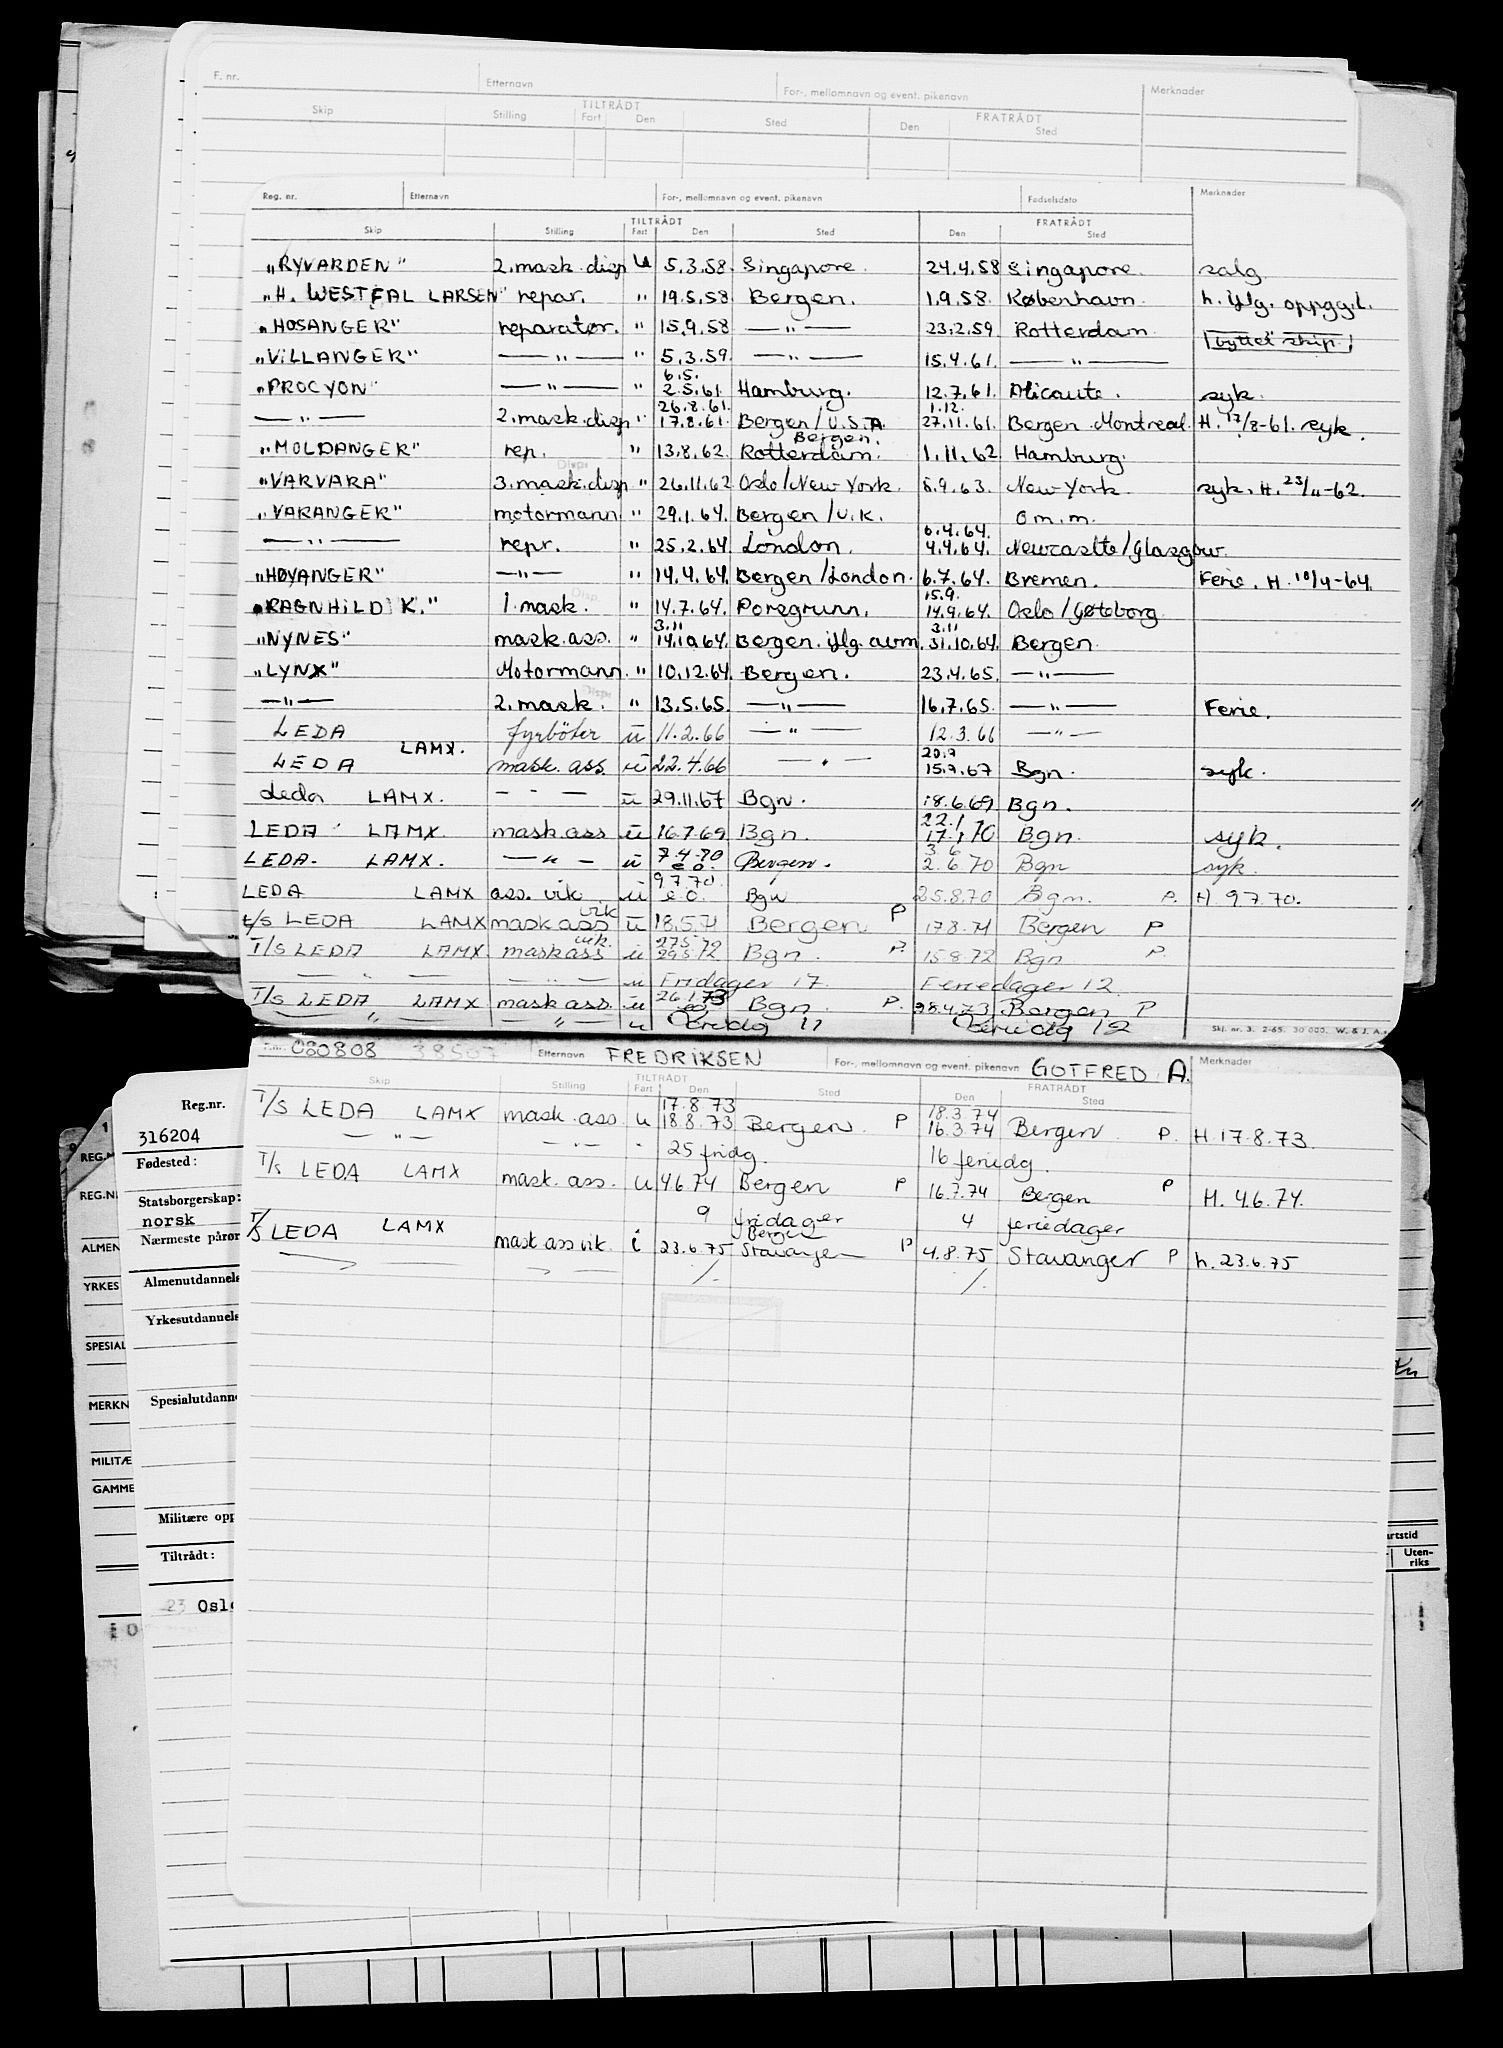 F. nr. Etternavn For-, mellomnavn og event. pikenavn Merknader
TILTRÅDT FRATRÅDT
Skip Stilling Fart Den Sted Den Sted
Reg. nr. Etternavn For-, mellomnavn og event. pikenavn Fødselsdato Merknader
TILTRÅDT FRATRÅDT
Skip Stilling Fart Den Sted Den Sted
"RYVARDEN" 2. mask. disp U 5.3.58. Singapore. 24.4.58 Singapore. salg
"H. WESTFAL LARSEN" repar. " 19.5.58 Bergen. 1.9.58. København. h. iflg. oppg.t.
"HOSANGER" reparatør. " 15.9.58 — " — 23.2.59 Rotterdam byttet skip
"VILLANGER" — " — " 5.3.59. — " — 15.4.61. — " —
6.5.
"PROCYON" — " — " 2.5.61 Hamburg. 12.7.61. Alicante. syk.
26.8.61. 1.12.
— " — 2. mask. disp " 17.8.61. Bergen/U.S.A. 27.11.61. Bergen Montreal. H. 17/8-61. syk.
Bergen.
"MOLDANGER" rep. " 13.8.62. Rotterdam. 1.11.62 Hamburg.
Disp.
"VARVARA" 3. mask. disp " 26.11.62 Oslo/New York. 8.9.63. New York. syk. H. 23/11-62.
"VARANGER" motormann " 29.1.64. Bergen/U.K. o m.m.
6.4.64.
— " — repr. " 25.2.64 London. 4.4.64. Newcastle/Glasgow.
"HØYANGER" — " — " 14.4.64. Bergen/London. 6.7.64. Bremen. Ferie. H. 10/4-64.
Disp. 15.9.
"RAGNHILD K." 1. mask. " 14.7.64. Porsgrunn. 14.9.64. Oslo/Gøteborg
3.11 3.11
"NYNES" mask. ass. " 14.10.64. Bergen. iflg. avm. 31.10.64. Bergen.
"LYNX" Motormann. " 10.12.64. Bergen. 23.4.65. — " —
Disp.
— " — 2. mask. " 13.5.65. — " — 16.7.65. — " — Ferie.
LEDA fyrböter u 11.2.66 — " — 12.3.66 — " —
LAMX. 20.7
LEDA mask. ass. u 22.4.66 — " — 15.7.67 Bgn. syk.
Leda LAMX. — " — u 29.11.67 Bgn. 18.6.69 Bgn.
22.1
LEDA LAMX. mask ass u 16.7.69 Bgn. 17.1.70 Bgn. syk.
7.4.70 3.6
LEDA. LAMX. — " — u e.o. Bergen. 2.6.70 Bgn syk.
9.7.70.
LEDA LAMX ass. vik. u e.o. Bgn 25.8.70 Bgn. P. H 9.7.70.
vik
t/s LEDA LAMX mask ass u 18.5.71 Bergen P 17.8.71 Bergen P
vik. 27.5.72
T/s LEDA LAMX. mask ass u 29.5.72 Bgn. P. 15.8.72 Bgn P.
— " — — " — u Fridager 17. Feriedager 12.
26.1.73
T/s LEDA LAMX mask ass. u Bgn. P. 28.4.73 Bergen P
— " — — " — u 11 Feriedg 12
Skj. nr. 3. 2-65. 30 000. W. & J. A.s
F.nr. 080808 38507 Etternavn FREDRIKSEN For-, mellomnavn og event. pikenavn GOTFRED A. Merknader
TILTRÅDT FRATRÅDT
Skip Stilling Fart Den Sted Den Sted
17.8.73 18.3.74
T/s LEDA LAMX mask. ass u 18.8.73 Bergen. P 16.3.74 Bergen. P. H. 17.8.73.
— " — — " — " 25 fridg. 16 feriedg.
T/s LEDA LAMX mask. ass. u 4.6.74 Bergen P 16.7.74 Bergen P H. 4.6.74.
9 fridager 4 feriedager
Bergen
T/s LEDA LAMX mask ass vik. i 23.6.75 Stavanger P 4.8.75 Stavanger P h. 23.6.75
./. ./.
Reg.nr.
316204
Fødested:
Statsborgerskap:
norsk
Nærmeste pårør
Almenutdannels
Yrkesutdannels
Spesialutdanne
Militære opp
Tiltrådt:
23 Oslo
REG.N
REG.N
ALMEN
YRKES
SPESIAL
MERKN
MILITÆ
GAMME
artstid
Uten-
riks